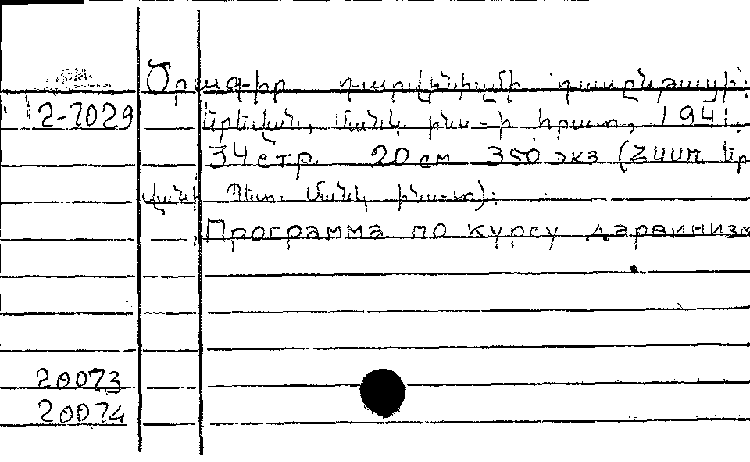 Ծրագ-իր դարվինիզմի դասընթացի:
2-7029 Երեվան, Մանկ ինս-ի հրատ, 1941.
34 стр. 20 см 350 экз (ՀՍՍՌ Եր
վանի Պետ. Մանկ ինս-տ):
Программа по курсу дарвинизм
20073
20074